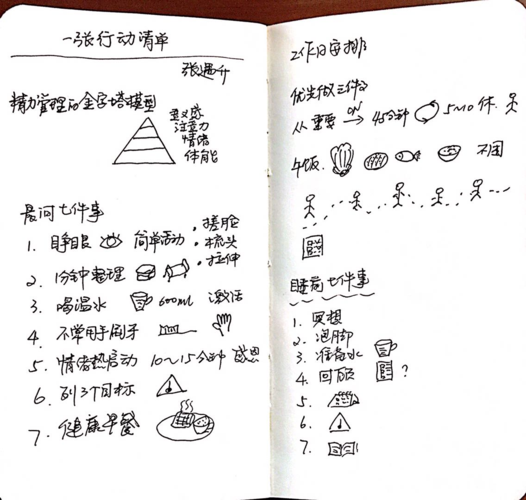 一张行动清单
张遇升
精力管理的金字塔模型
意义感
注意力
情绪
体能
晨间七件事
1. 睁眼 简单活动 • 搓脸
• 梳头
• 拉伸
2. 1分钟整理
3. 喝温水 600ml 激活
4. 不常用手刷牙
5. 情绪热启动 10~15分钟 感恩
6. 列3个目标
7. 健康早餐
工作日安排
优先做三件事
从 重要 ON → 45分钟 5~10 休.
午饭. 不困
睡前七件事
1. 冥想
2. 泡脚
3. 准备水
4. 回顾 ?
5.
6.
7.